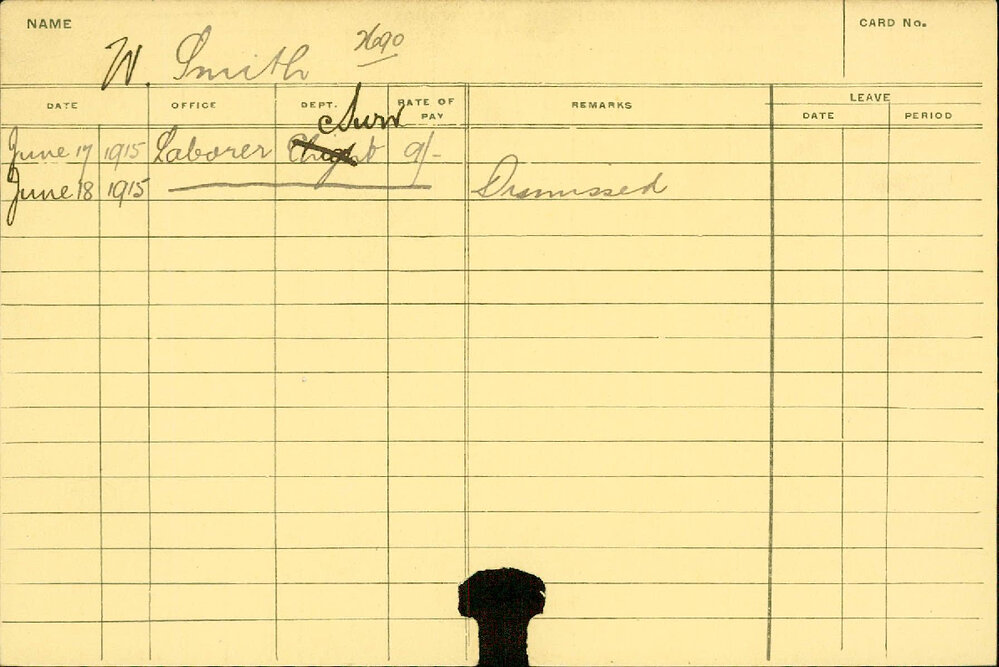 NAME
CARD No.
W. Smith
DATE OFFICE DEPT. RATE OF PAY REMARKS LEAVE
DATE PERIOD
Surv
June 17 1915 Laborer 9/-
June 18 1915 Dismissed